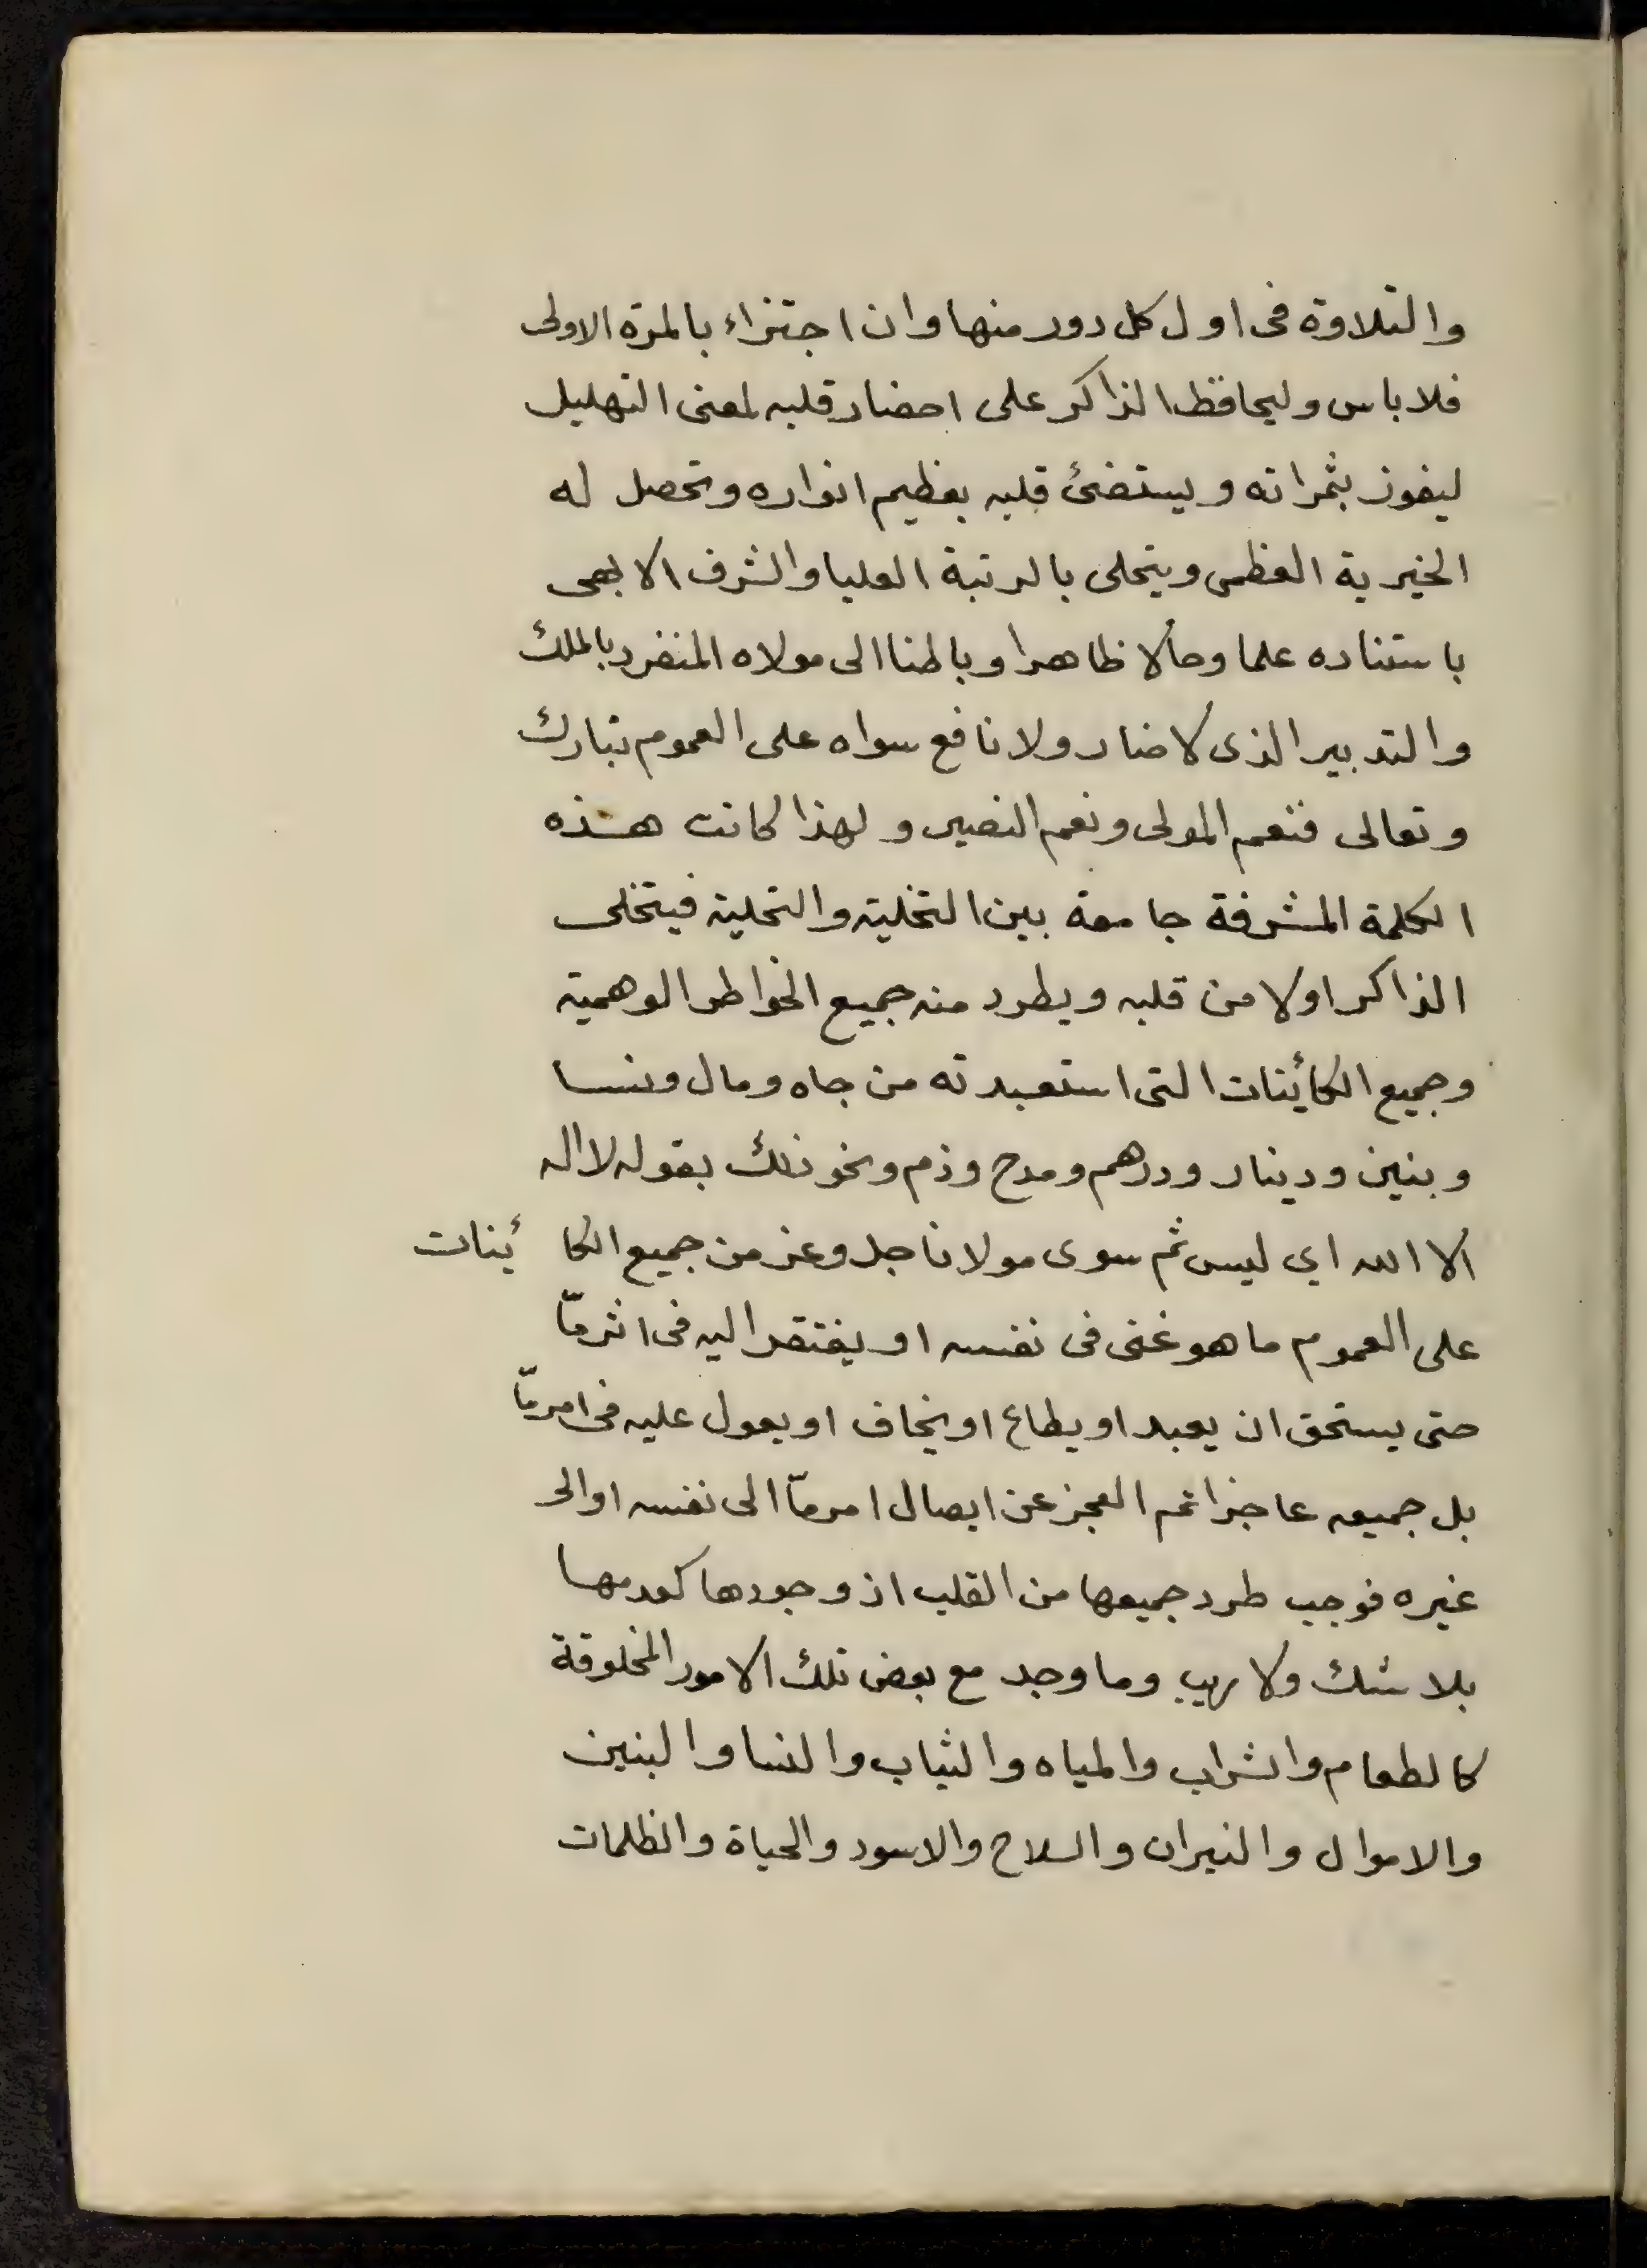 والتلاوة فى اول كل دور منها وان اجتزاء بالمرة الاولى
فلا باس وليحافظ الذاكر على احضار قلبه لمعنى التهليل
ليفوز بثمراته ويستضئ قلبه بعظيم انواره وتحصل له
الخيرية العظمى ويتحلى بالرتبة العليا والشرف الابهى
باستناده علما وحالا ظاهرا وباطنا الى مولاه المنفرد بالملك
والتدبير الذى لا ضار ولا نافع سواه على العموم تبارك
وتعالى فنعم المولى ونعم النصير ولهذا كانت هذه
الكلمة المشرفة جامعة بين التخلية والتحلية فيتخلى
الذاكر اولا من قلبه ويطرد منه جميع الخواطر الوهمية
وجميع الكائنات التى استعبدته من جاه ومال ونسا
وبنين ودينار ودرهم ومدح وذم ونحو ذلك بقوله لا اله
الا الله اي ليس ثم سوى مولانا جل وعز من جميع الكائنات
على العموم ما هو غنى فى نفسه او يفتقر اليه فى اثر مّا
حتى يستحق ان يعبد او يطاع او يخاف او يعول عليه فى امر مّا
بل جميعه عاجز اتم العجز عن ايصال امر مّا الى نفسه او الى
غيره فوجب طرد جميعها من القلب اذ وجودها كعدمها
بلا شك ولا ريب وما وجد مع بعض تلك الامور المخلوقة
كالطعام والشراب والمياه والثياب والنسا والبنين
والاموال والنيران والسلاح والاسود والحياة والظلمات